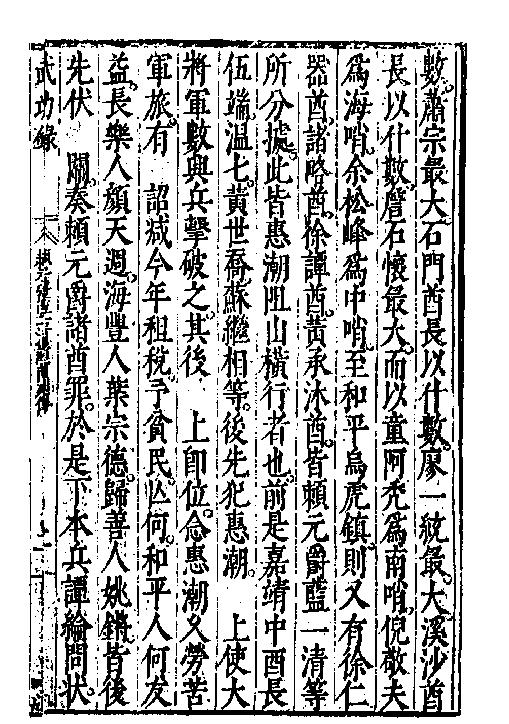 數蕭宗最大石門酋長以什數廖一統最大溪沙酋
長以什數詹石懷最大而以童阿禿爲南哨倪敬夫
爲海哨余松峰爲中哨至和平烏虎鎮則又有徐仁
器酋諸略酋徐譚酋黃承沐酋皆賴元爵藍一清等
所分據此皆惠潮阻山橫行者也前是嘉靖中酋長
伍端溫七黃世喬蘇繼相等後先犯惠潮 上使大
將軍數與兵擊破之其後 上卽位念惠潮久勞苦
軍旅有 詔減今年租稅予貧民亾何和平人何友
益長樂人顏天週海豐人葉宗德歸善人姚鏘皆後
先伏 闕奏賴元爵諸酋罪於是下本兵譚綸問狀
武功錄